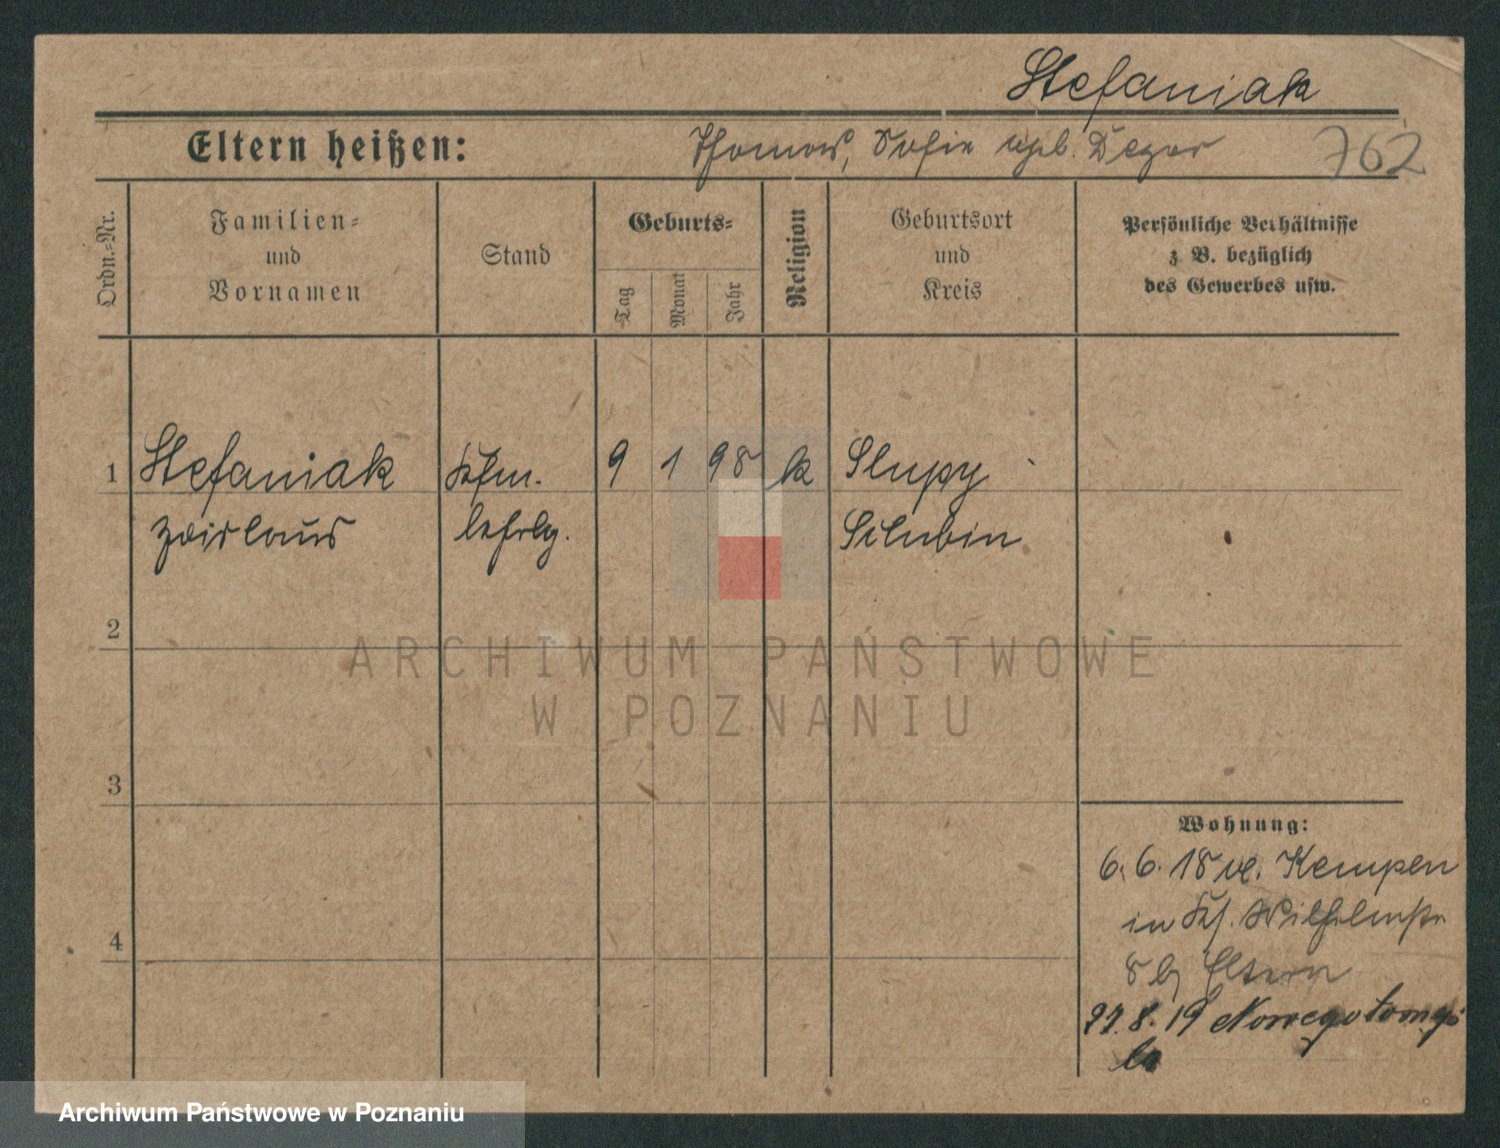 Stefaniak
Eltern heißen: Thomas, Sofie geb. Dezor 762
Ordn.=Nr.
Familien=
und
Vornamen
Stand
Geburts=
Tag
Monat
Jahr
Religion
Geburtsort
und
Kreis
Persönliche Verhältnisse
z B. bezüglich
des Gewerbes usw.
1 Stefaniak Kfm. 9 1 98 k Slupy
lehrlg. Schubin
2
3
4
Wohnung:
6. 6. 18 Kempen
in Wilhelmstr
8 b Eltern
8. 19 Nowego tomyś
la
ARCHIWUM PAŃSTWOWE
W POZNANIU
Archiwum Państwowe w Poznaniu